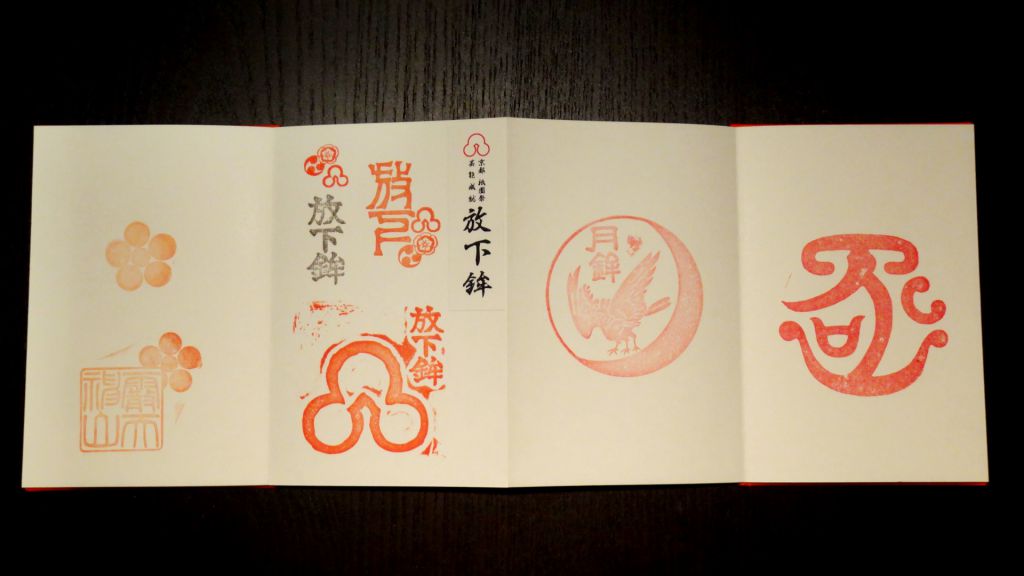 霰天
神山
放下鉾
放下
放下鉾
京都 祇園祭
放下鉾
月鉾